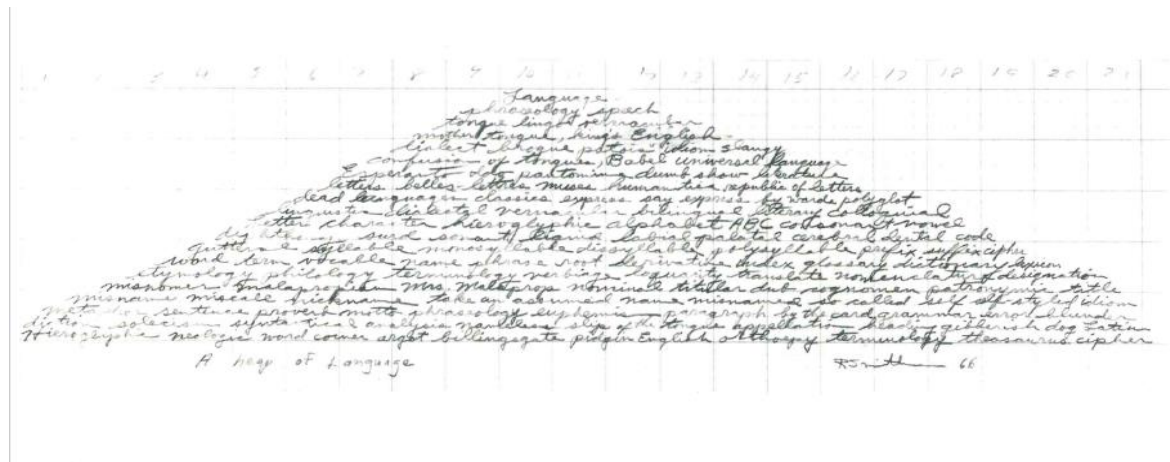 1 2 3 4 5 6 7 8 9 10 11 12 13 14 15 16 17 18 19 20 21
Language
phraseology speech
tongue lingo vernacular
mother tongue, king's English
dialect brogue patois idiom slangy
confusion of tongues, Babel universal language
Esperanto Ido pantomime dumb show literature
letters belles-lettres muses humanities republic of letters
dead languages classics express say express by words polyglot
linguistics dialectal vernacular bilingual literary colloquial
letter character hieroglyphic alphabet ABC consonant vowel
surd sonant liquid labial palatal cerebral dental code
guttural syllable monosyllable dissyllable polysyllable prefix suffix cipher
word term vocable name phrase root derivative index glossary dictionary lexicon
etymology philology terminology verbiage loquacity translate nomenclature designation
misnomer malapropism Mrs. Malaprop nominal titular dub cognomen patronymic title
misname miscall nickname take an assumed name misnamed so called self styled idiom
sentence proverb motto phraseology euphemism paragraph by the card grammar error blunder
diction solecism syntax analysis nameless slip of the tongue appellation gibberish dog Latin
neologist word coiner argot billingsgate pidgin English orthoepy terminology thesaurus cipher
A heap of Language
R Smithson 66